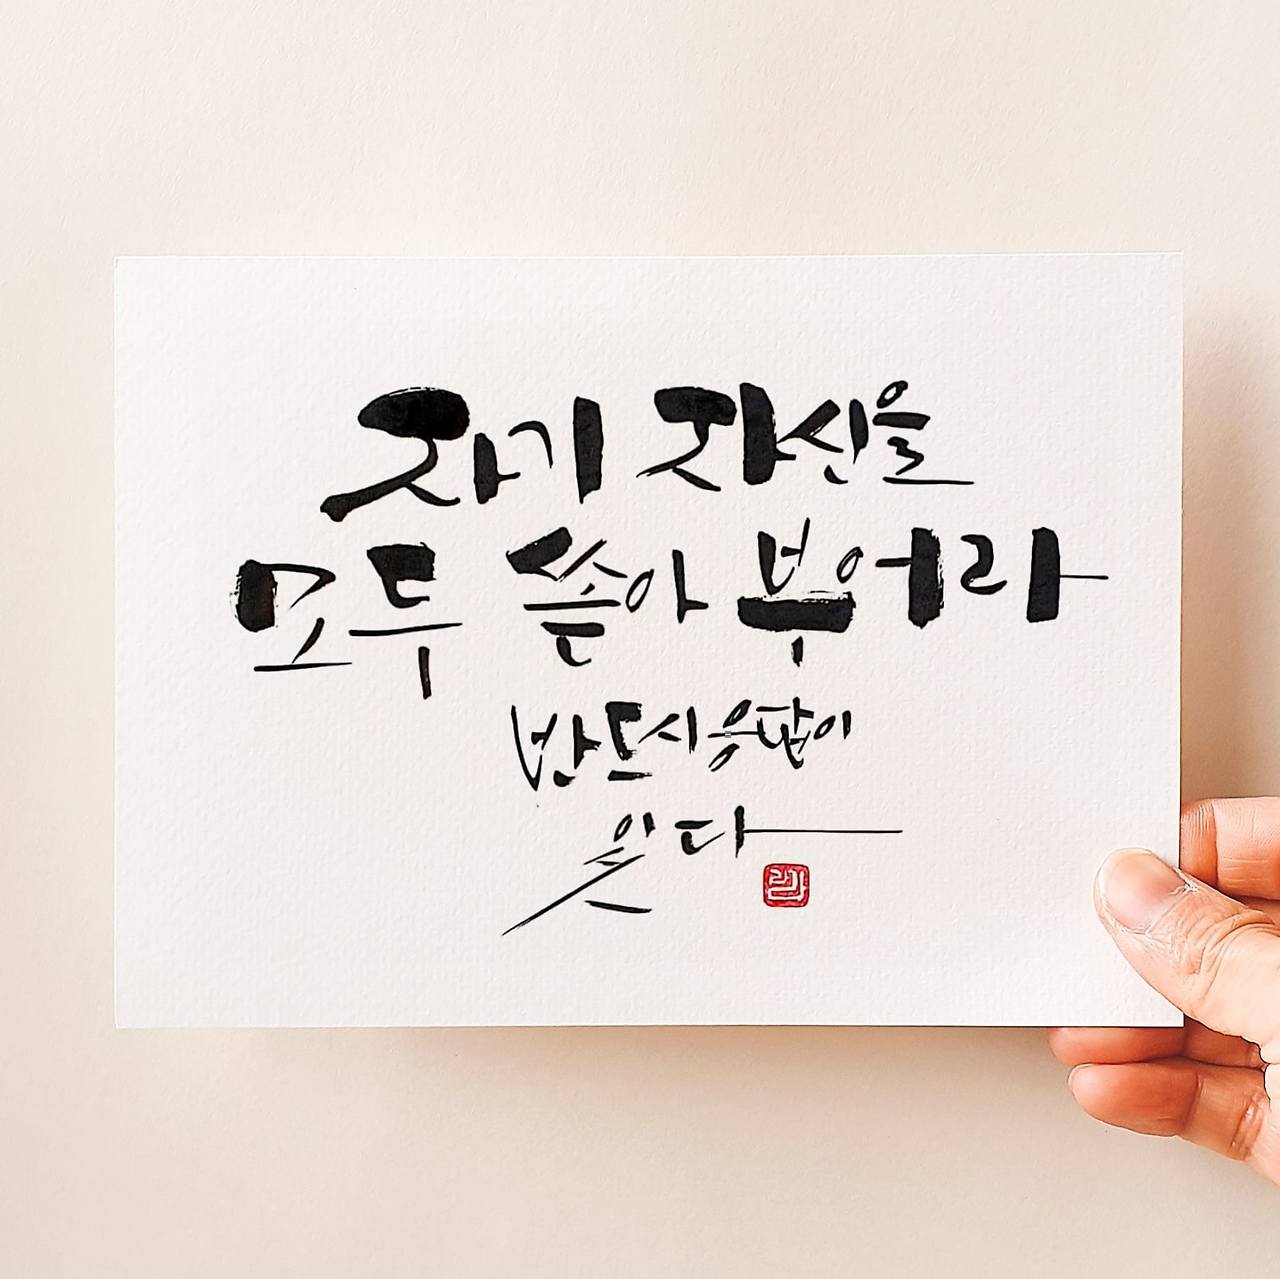 자기 자신을
모두 쏟아 부어라
반드시 응답이
있다